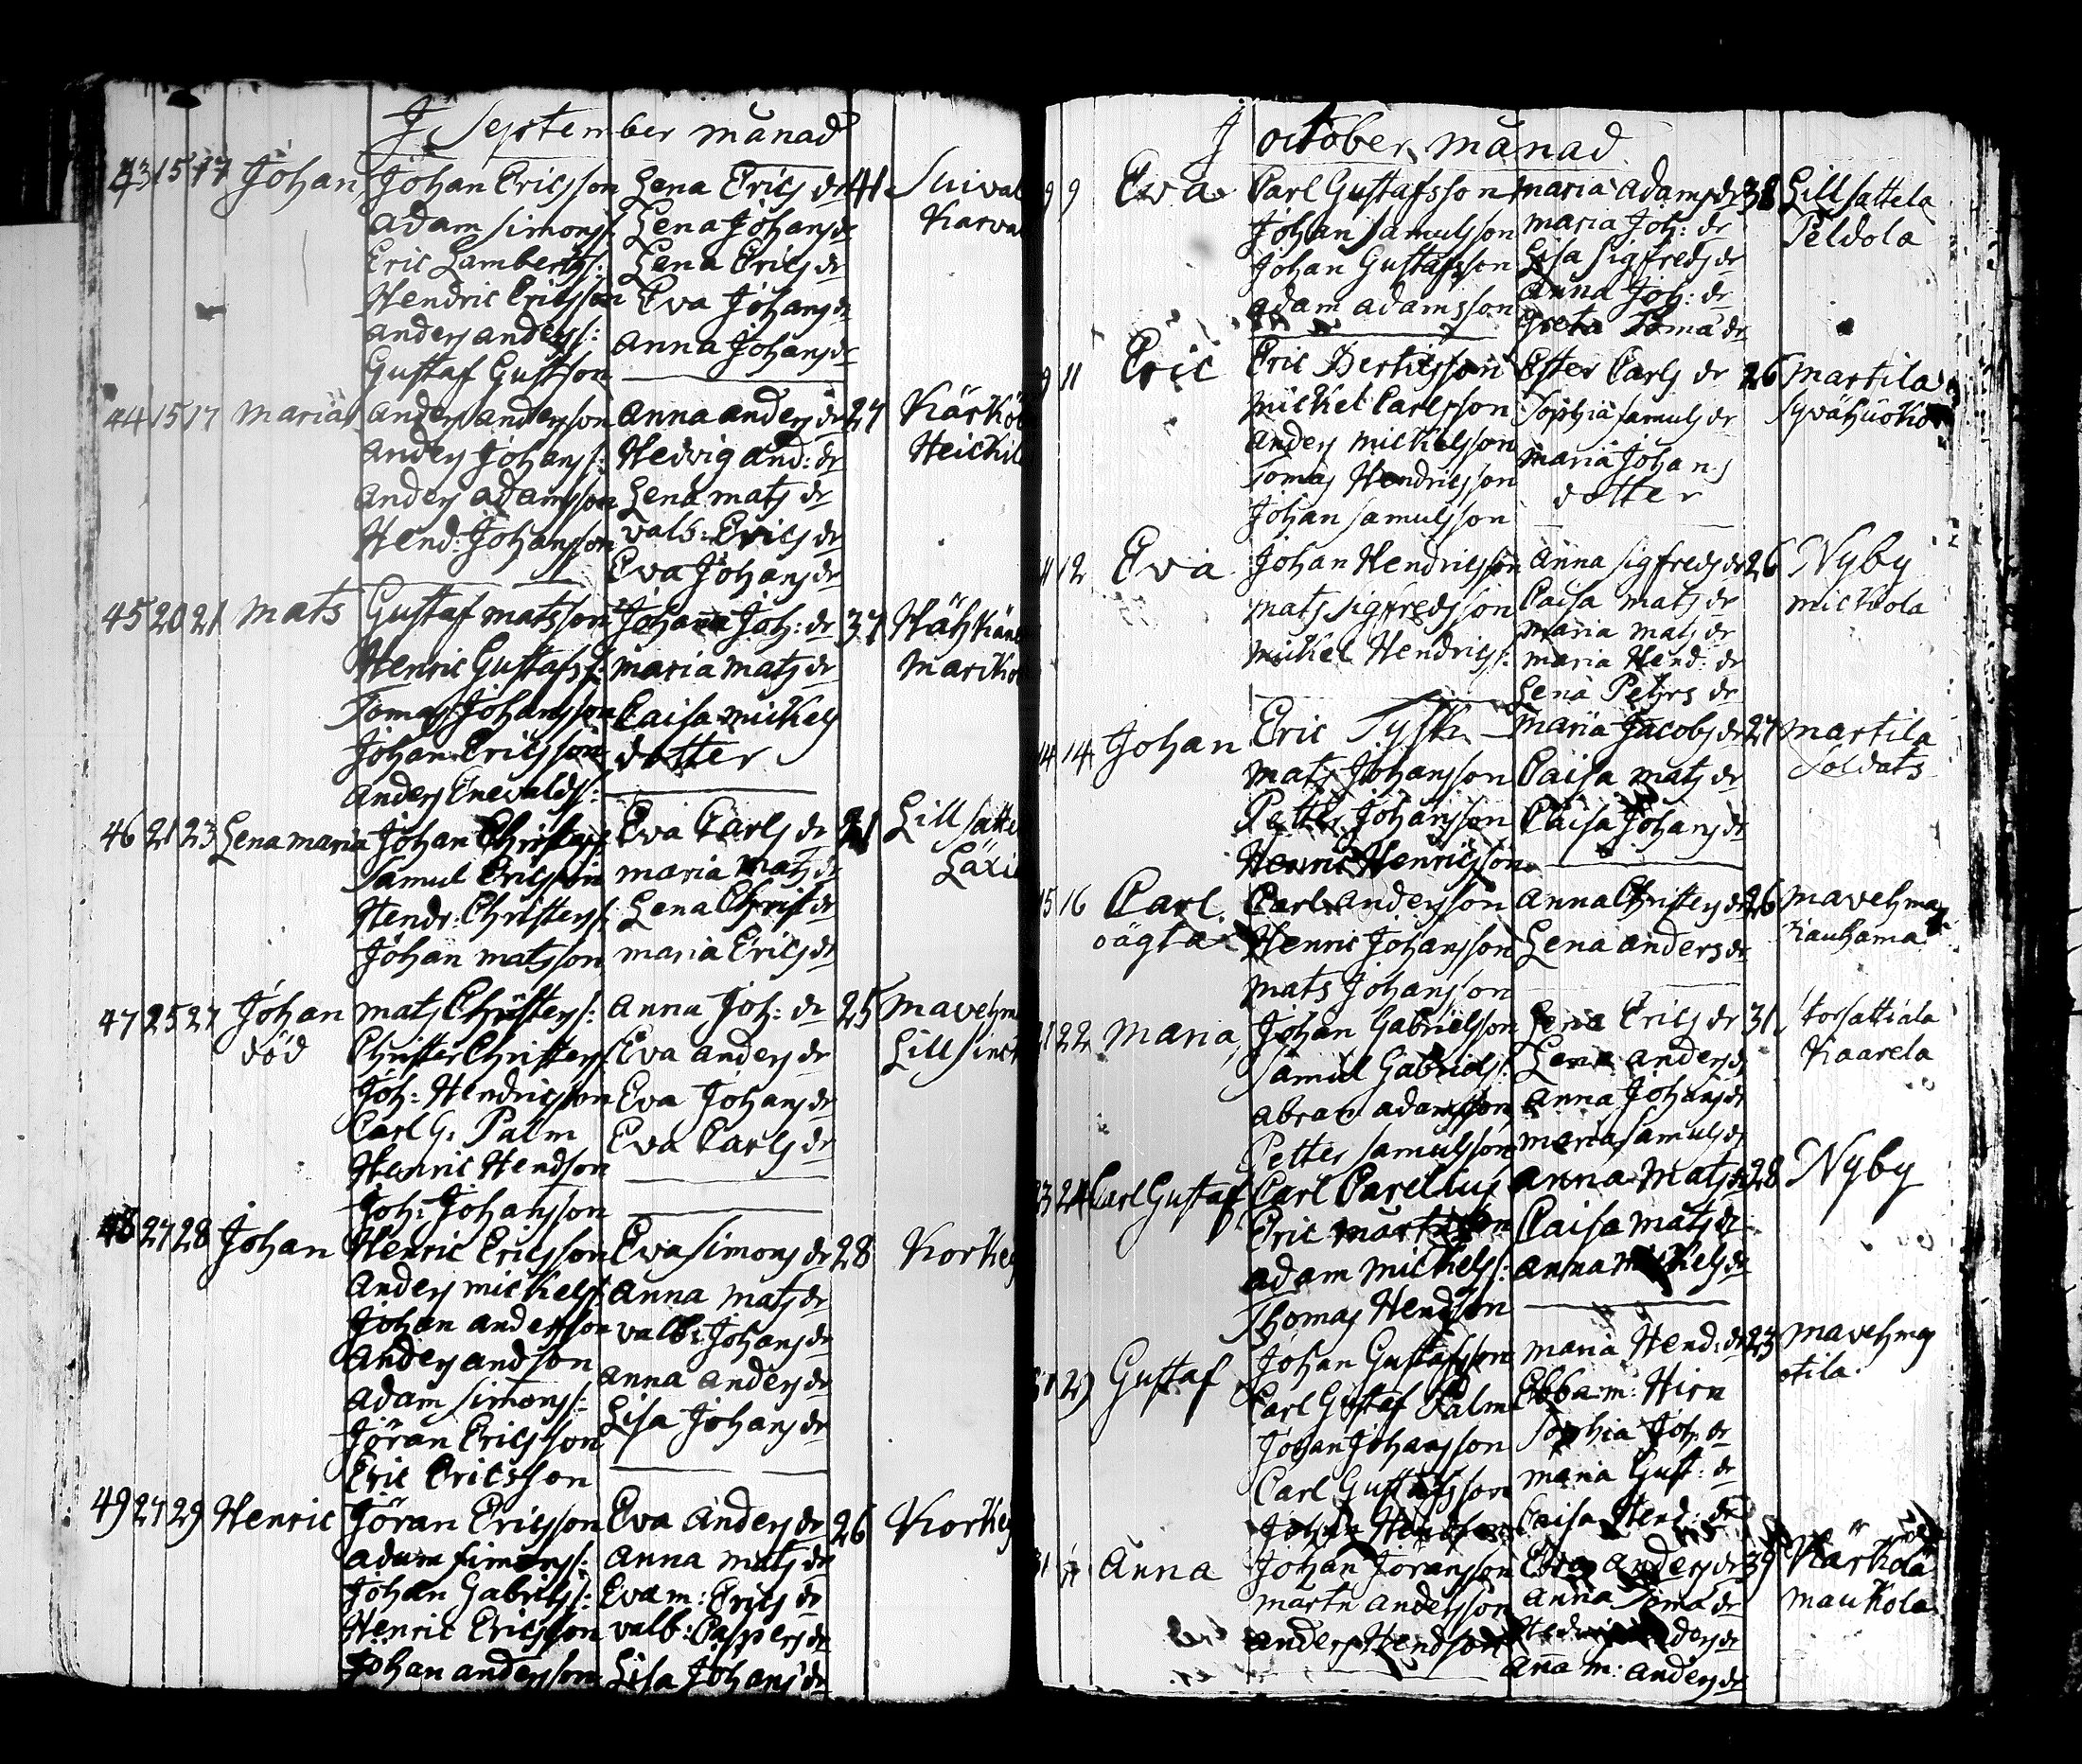 I September månad
43 15 17 Johan Johan Ericsson Lena Ericsdr 41 Suival
Adam Simonss: Lena Johansdr Karva
Eric Lambertss: Lena Ericsdr
Hendric Ericsson Eva Johansdr
Anders anderss: Anna Johansdr
Gustaf Gustson
44 15 17 Maria Anders andersson Anna andersdr 27 Kärkö
Anders Johanss: Hedvig and: dr Heickil
Anders adamsson Lena matsdr
Hend: Johansson valb: Ericsdr
Eva Johansdr
45 20 21 Mats Gustaf matsson Johana Joh: dr 37
Henric Gustafss: maria matsdr Mariko
Tomas Johansson Caisa mickels
Johan Ericsson dotter
Anders Enevaldss:
46 21 23 Lena maria Johan Eva Carlsdr 21 Lill satt
Samul Ericsson maria matsdr
Hendr: Christerss: Lena Christdr
Johan matsson maria Ericsdr
47 25 27 Johan mats Christerss: Anna Joh: dr 25 mavehm
död Christer Christerss: Eva andersdr Lill
Joh: Hendricsson Eva Johansdr
Carl G: Palm Eva Carlsdr
Henric Hendson
Joh: Johansson
48 27 28 Johan Henric Ericsson Eva Simonsdr 28 Korke
Anders mickelss: Anna matsdr
Johan andersson valb: Johansdr
Anders andson Anna andersdr
Adam Simonss: Lisa Johansdr
Jöran Ericsson
Eric Ericsson
49 27 29 Henric Jöran Ericsson Eva Andersdr 26 Korke
Adam Simonss: Anna matsdr
Johan Gabrielss: Eva m: Ericsdr
Henric Ericsson valb: Caspersdr
Johan andersson Lisa Johansdr
I october månad
9 9 Eva Carl Gustafsson maria adamsdr 38 Lill sattela
Johan Samulsson maria Joh: dr Peldola
Johan Gustafsson Lisa Sigfredsdr
Adam adamsson Anna Joh: dr
Greta Tomadr
9 11 Eric Eric Bertilsson Ester Carlsdr 26 Martila
Mickel Carlsson Sophia Samulsdr
Anders mickelsson maria Johans
Tomas Hendricsson dotter
Johan Samulsson
12 Eva Johan Hendricsson Anna Sigfredsdr 26 Nyby
Mats Sigfredsson Caisa matsdr mickola
Mickel Hendricss: maria matsdr
maria Hend: dr
Lena Petersdr
14 14 Johan Eric Tysk Maria Jacobsdr 27 Martila
Mats Johansson Caisa matsdr Soldats
Petter Johansson Caisa Johansdr
Henric Henricsson
15 16 Carl Carl andersson Anna Christersdr 26 mavehma
oägta Henric Johansson Lena andersdr Kauhama
Mats Johansson
21 22 Maria Johan Gabrielsson Lena Ericsdr 31 Storsattiala
Samul Gabrielss: Lena andersdr Kaarela
Abram adamsson Anna Johansdr
Petter Samulsson maria Samulsdr
23 24 Carl Gustaf Carl Carelius Anna Matsdr 28 Nyby
Eric Caisa matsdr
Adam Mickelss: Anna mickelsdr
Thomas Hendson
29 Gustaf Johan Gustafsson maria Hend: dr 23 mavehma
Carl Gustaf Palm Ebba m: Hirn otila
Johan Johansson Sophia Joh dr
Carl Gustafsson maria Gust: dr
Johan Hendson Caisa Hend: dr
31 Anna Johan Joransson Eva andersdr 39 Kärkölä
Martn andersson Anna Tomadr maukola
Anders Hendson
Ana m: andersdr